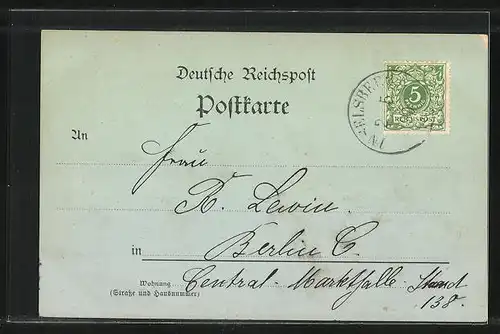 Deutsche Reichspost
Postkarte
An
Frau
R. Lewin
in Berlin C.
Wohnung
(Straße und Hausnummer)
Central-Markthalle Stand
138.
5
REICHSPOST